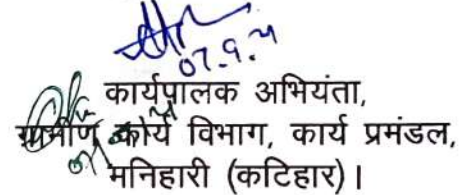 07.9.24
कार्यपालक अभियंता,
ग्रामीण कार्य विभाग, कार्य प्रमंडल,
मनिहारी (कटिहार)।